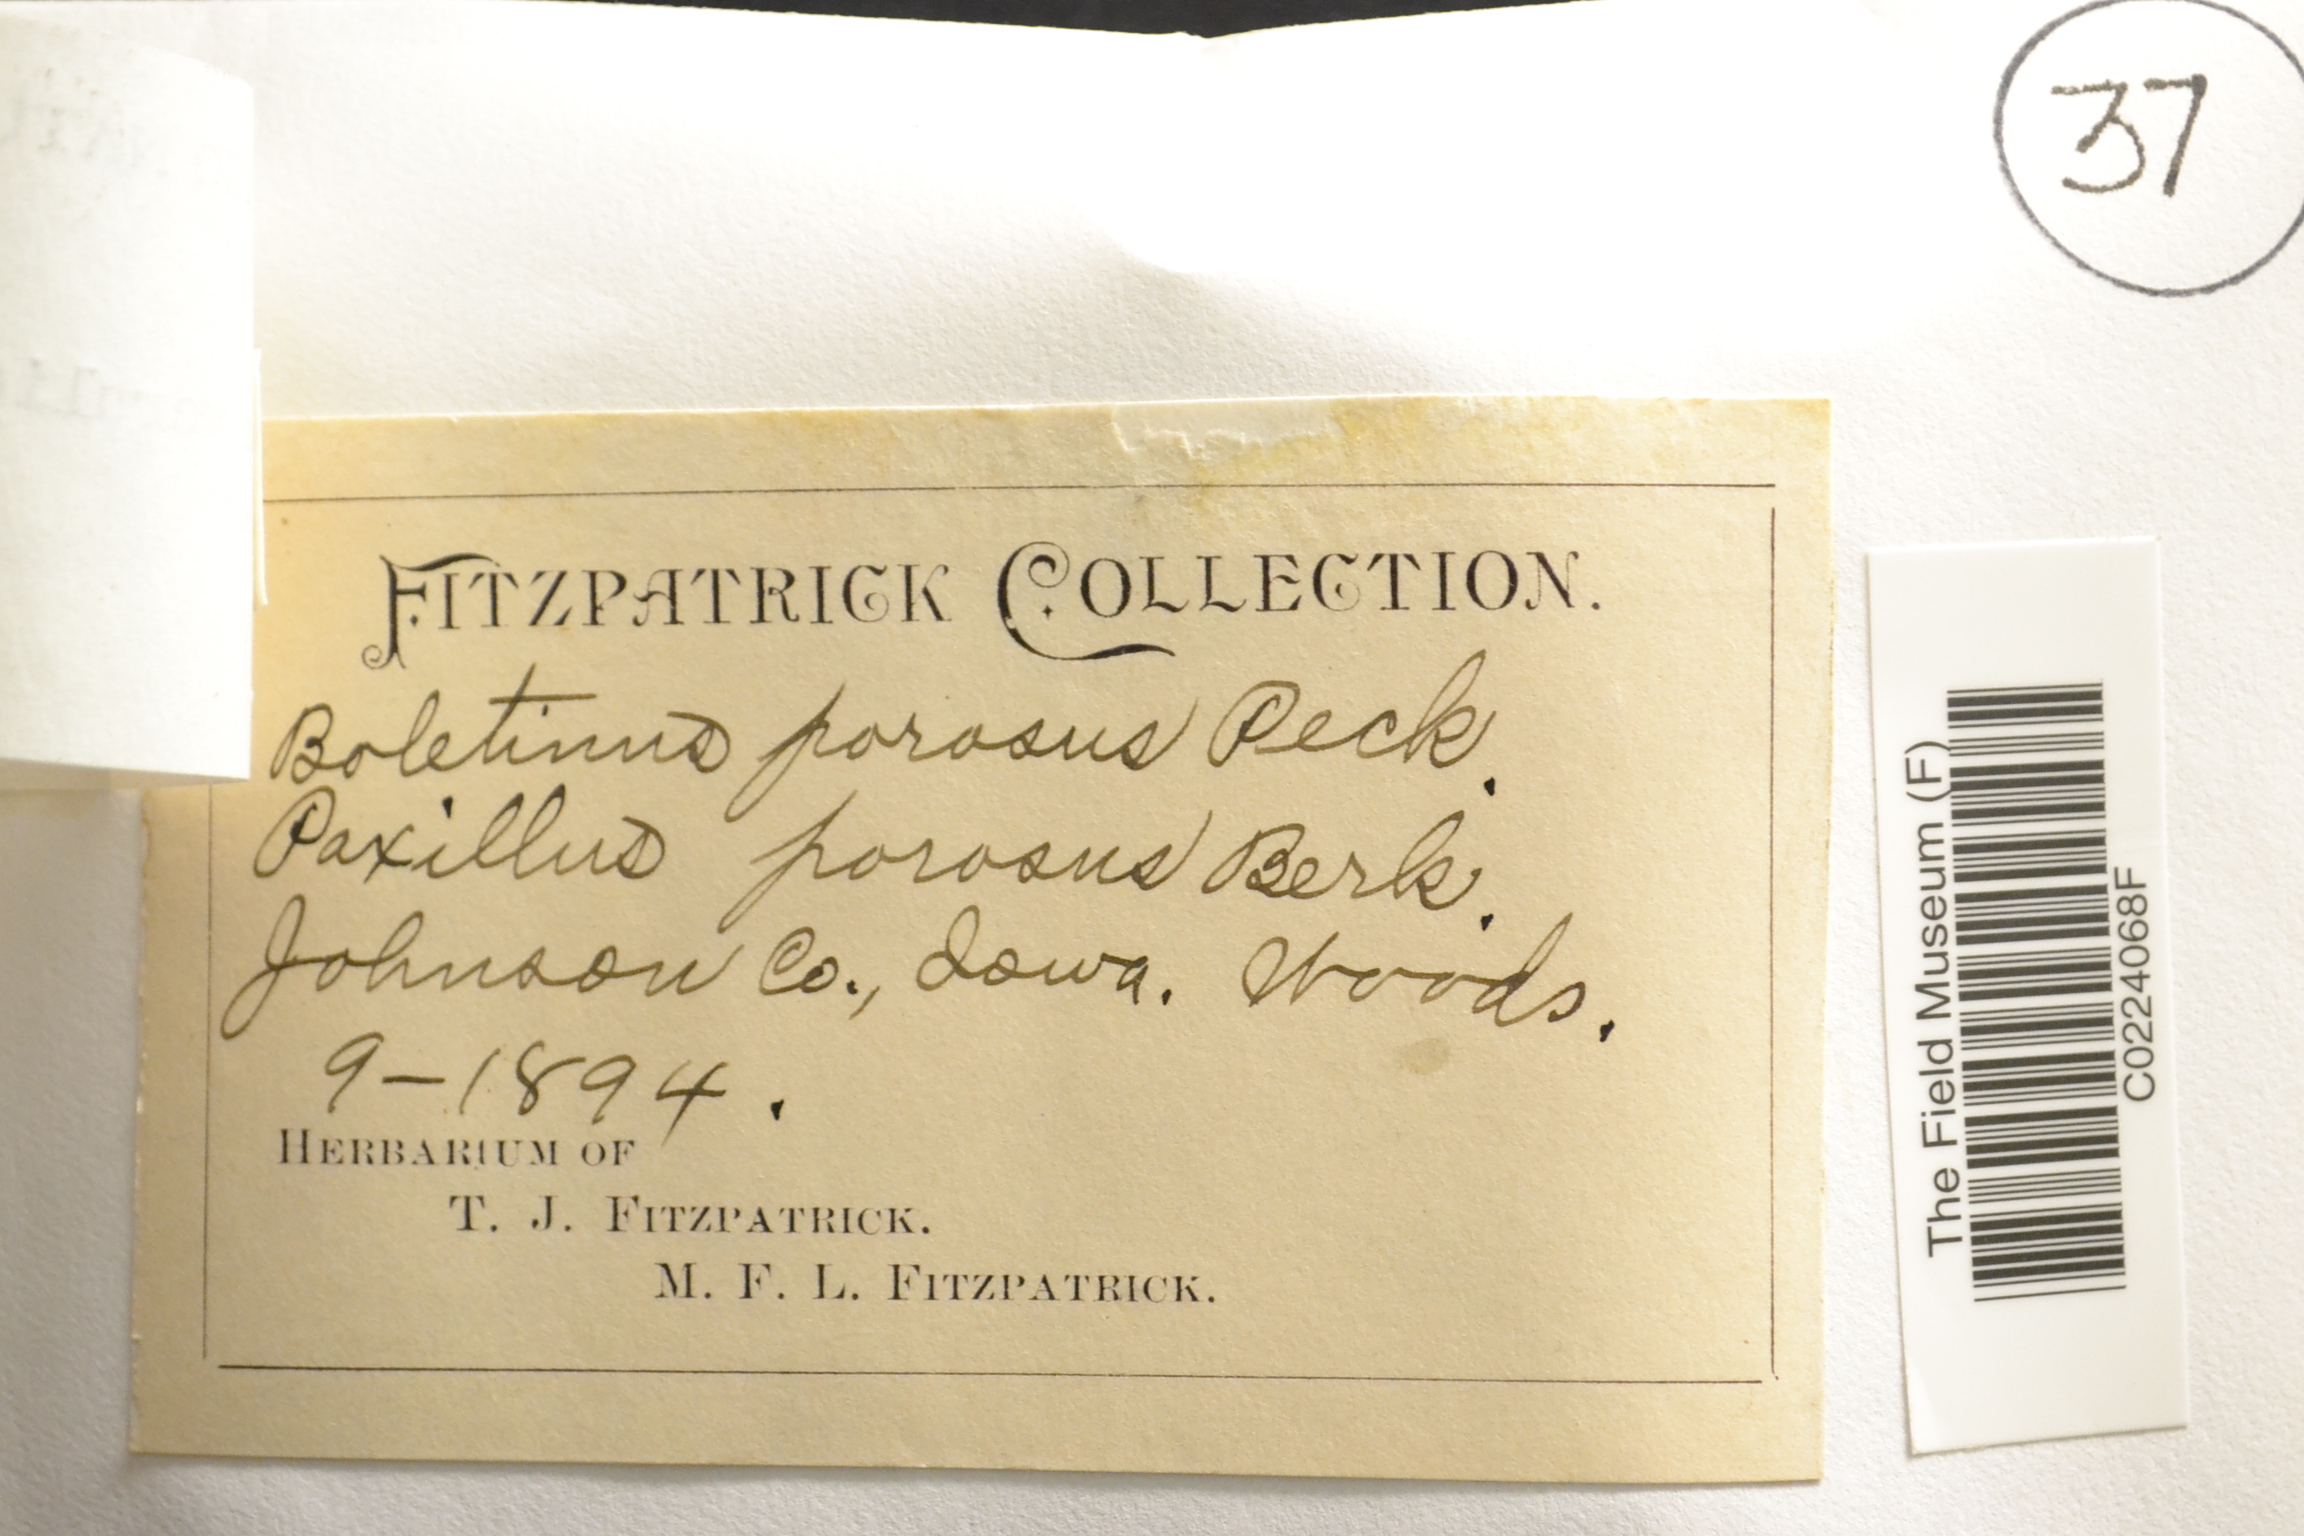 37
FITZPATRICK COLLECTION.
Boletinus porosus Peck.
Paxillus porosus Berk.
Johnson Co., Iowa. Woods.
9-1894.
HERBARIUM OF
T. J. FITZPATRICK.
M. F. L. FITZPATRICK.
The Field Museum (F)
C0224068F